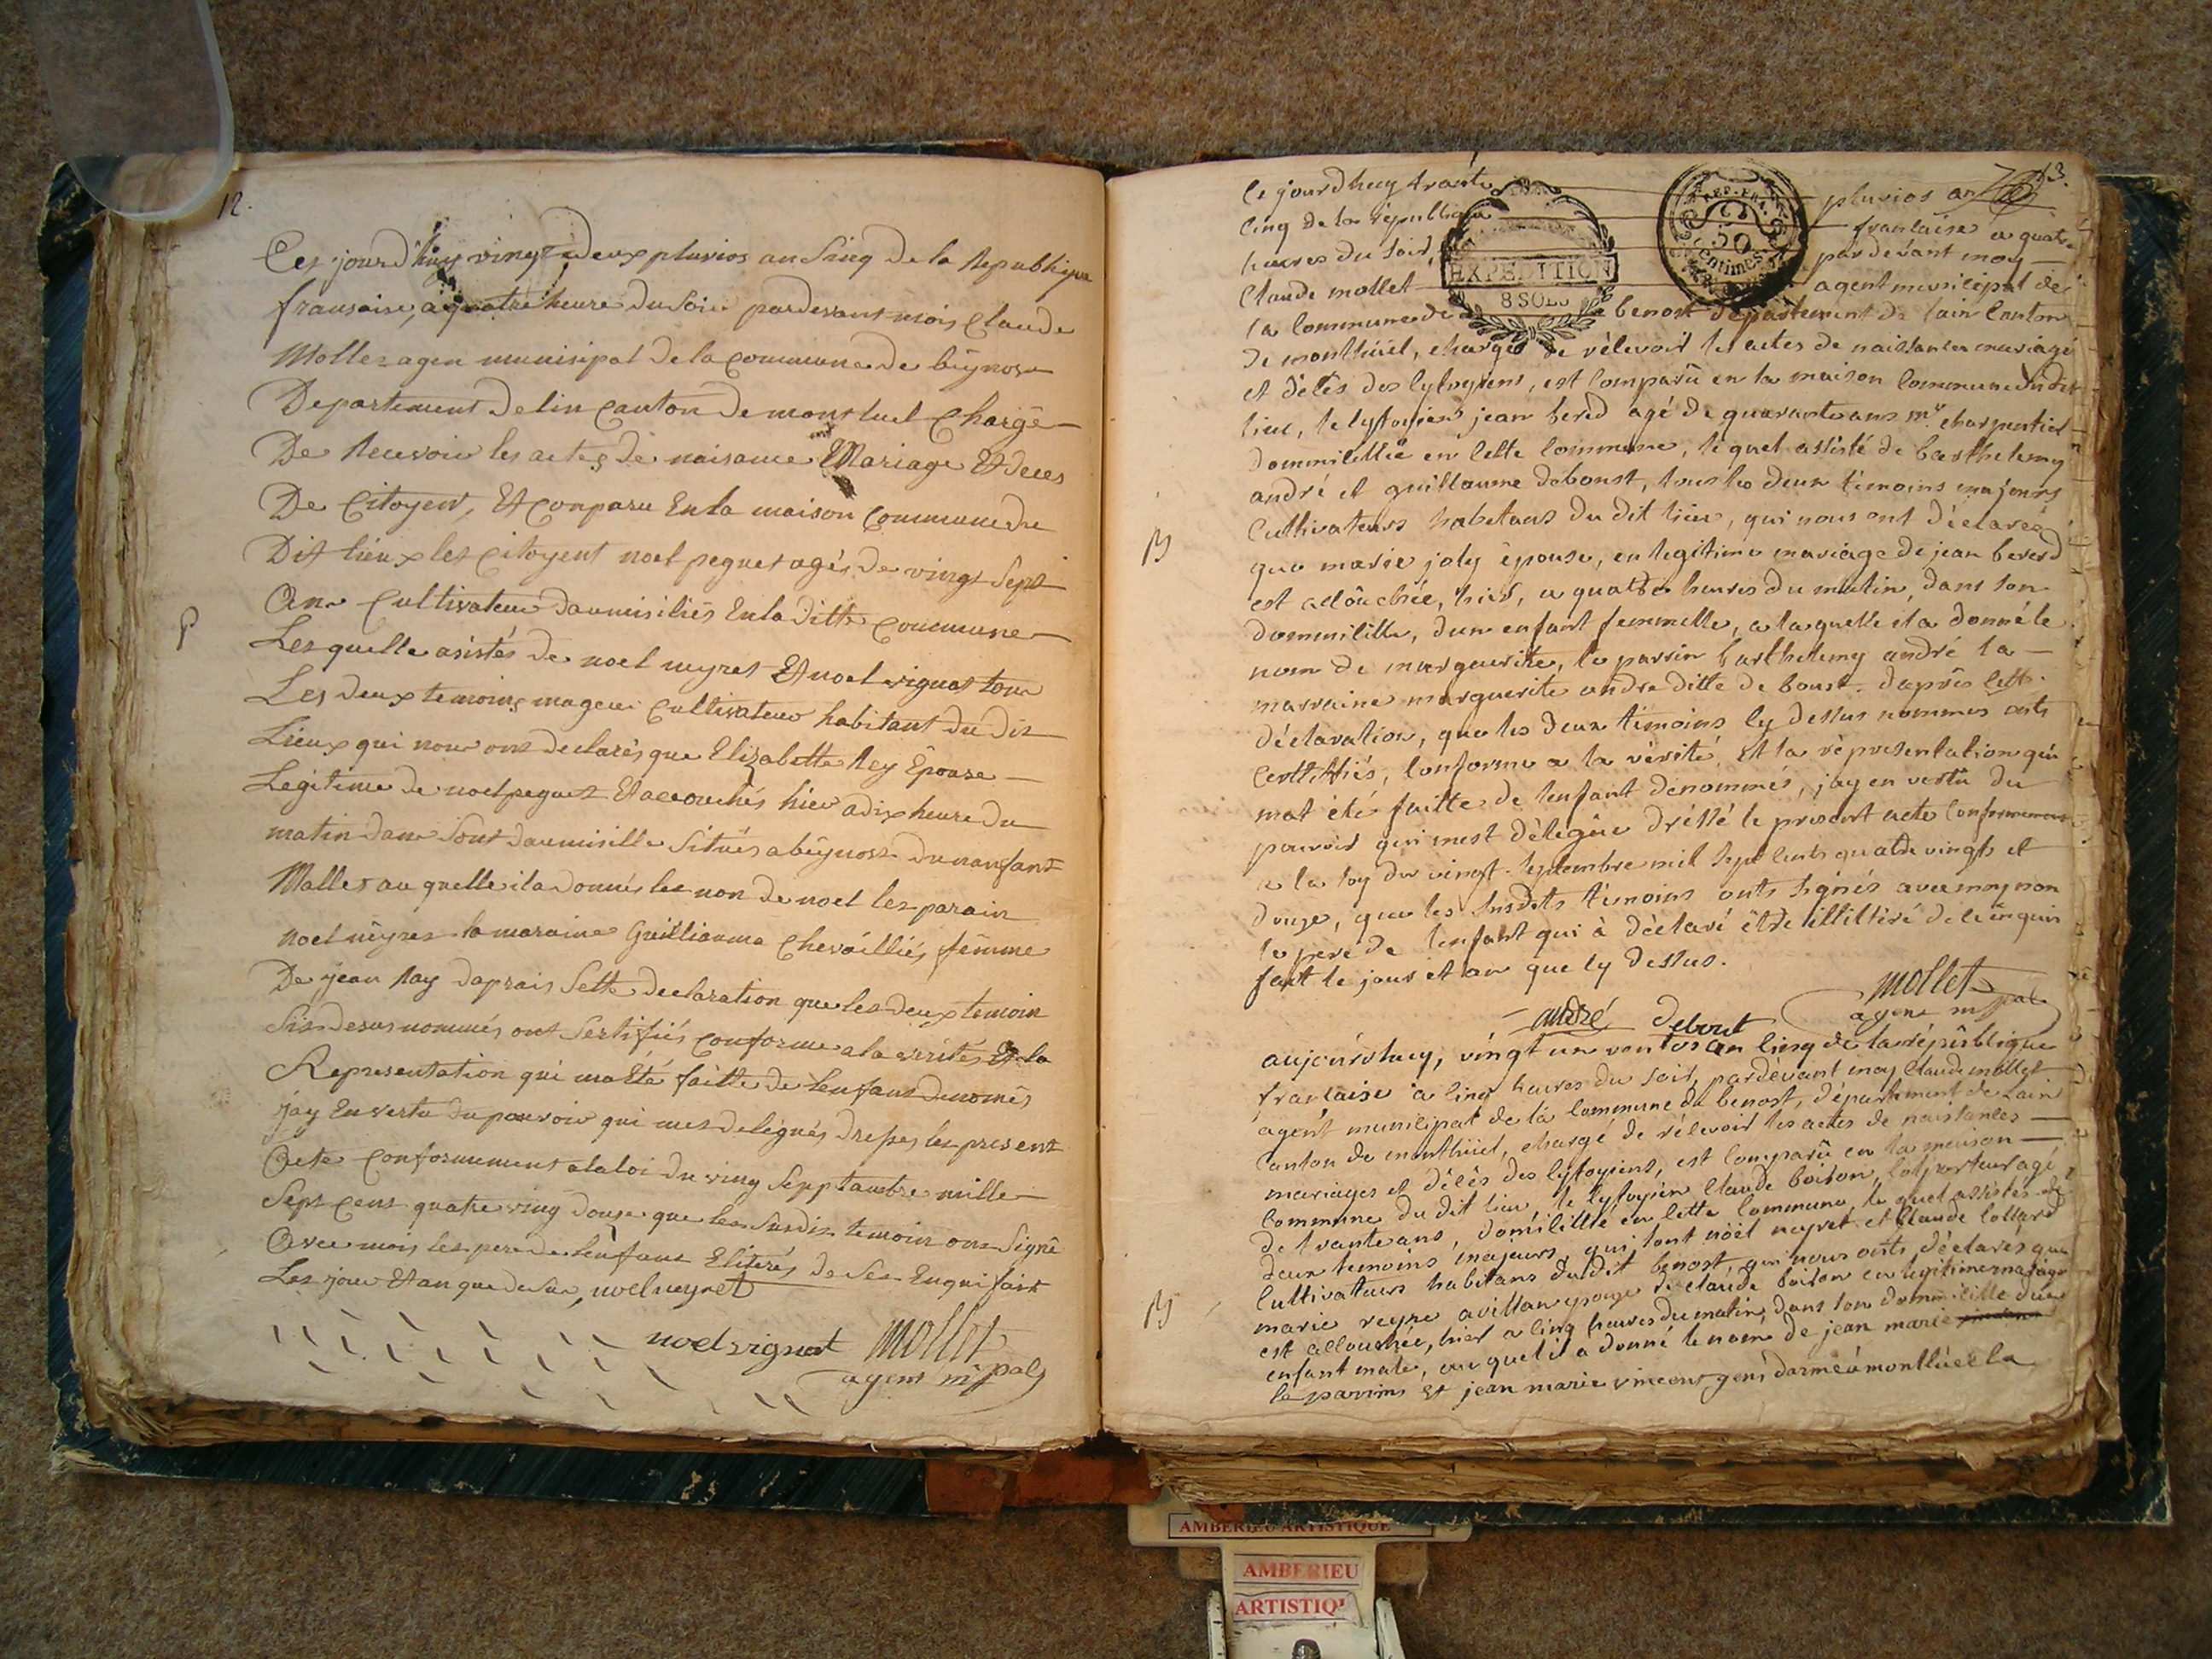 12.
Cej jourd'huy vingt deux pluvios an Sinq De la Republique
fransaise, a quatre heure Du Soir pardevant mois Claude
Mollet agen munisipal De la Commune de bëynost
Departement Delin Canton De montluel Chargé
De Recevoir les actes de naisance Mariage Et deces
De Citoyen, Et Conparu En la maison Commune du
Dit Lieux les Citoyent noel peguet agés De vingt Sept
An Cultivateur Daumisiliés En la Ditte Commune
P
Les quelle asistés de noel neyret Et noel vignat tous
Les deux temoins mageur Cultivateur habitant Du Dit
Lieux qui nous ont declarés que Elizabette Rey Épouse
Legitime de noel peguet Et accouchés hier a dix heure Du
matin dans Sont Daumisille Situés a bëynost Dunanfant
Malle au quelle il a donnés les non de noel les parain
noel nëyret la maraine Guillianma Chevailliés femme
De jean Ray daprais Sette declaration que les deux temoin
Sis Desus nommés ont Sertifiés Conforme a la veritée Et la
Representation qui ma Eté faitte de Lenfant Denomés
jay En vertu Du pouvoir qui mest delegués dresses les present
Acte Conformement a la loi du ving Sepptambre mille
Sept Cent quatre ving Douze que les Susdit temoin ont Signé
Avec mois les pere de lenfant Eliterés de Ses Enqui fait
Les jour Et an que desue, noel neyret
noel vignat mollet
agent mpal
13.
Ce jourdhuy trante pluvios an
Cinq de la republique francaise a quatre
heures du soir, pardevant moy
Claude mollet agent municipal de
EXPEDITION
8 SOLS
REP. FRA.
50
Centimes
la Commune de benost departement de lain Canton
de montluel, chargé de récevoir les actes de naissances mariage
et décés des Cytoyiens, est Comparû en la maison Commune du dit
lieu, le Cytoyien jean berod agé de quarante ans mr. charpentier
dommicillié en Cette Commune, lequel assisté de barthelemy
andré et guillaume deboust, tous les deux témoins majeurs
Cultivateurs habitans du dit lieu, qui nous ont déclarés
B
que marie joly épouse, en legitime mariage de jean berod
est accouchée, hier, a quatre heures du matin, dans son
dommicille, dun enfant femmelle, a laquelle il a donné le
nom de marguerite, le parrin barthelemy andré la
marraine marguerite andre ditte de boust. daprés Cette
déclaration, que les deux témoins Cy dessus nommes onts
Certiffiés, Conforme a la vérité, et la répresentation qui
mat été faitte de lenfant denommés, jay en vertu du
pouvoir qui mest délegûe dréssé le present acte Conformement
a la loy du vingt Septembre mil Sept Cents quatre vingts et
douze, que les Susdits témoins onts signés avec moy non
le pere de lenfant qui à déclaré être illitéré de ce enquis
fait le jour et an que Cy dessus.
andré debout mollet
agent mpal
aujourdhuy, vingt un ventos an Cinq de la république
francaise a Cinq heures du soir, pardevant moy Claude mollet
agent municipal de la Commune de benost, département de Lain
Canton de montluel, chargé de récevoir les actes de naissances
mariages et décés des Cytoyiens, est Comparû en la maison
Commune du dit lieu, le Cytoyien Claude boison, Colporteur agé
de trante ans, domicillié en Cette Commune, le quel assistés de
deux temoins majeurs, qui sont nöel neyret et Claude Collard
Cultivateurs habitans du dit benost, qui nous onts déclarés que
B
marie reyne avillan epouse de claude boison en legitime mariage
est accouchée, hier a Cinq heures du matin, dans son dommicille dun
enfant male, au quel il a donné le nom de jean marie
le parrins Et jean marie vincent gens darme a montluel la
AMBERIEU ARTISTIQUE
AMBERIEU
ARTISTIQ